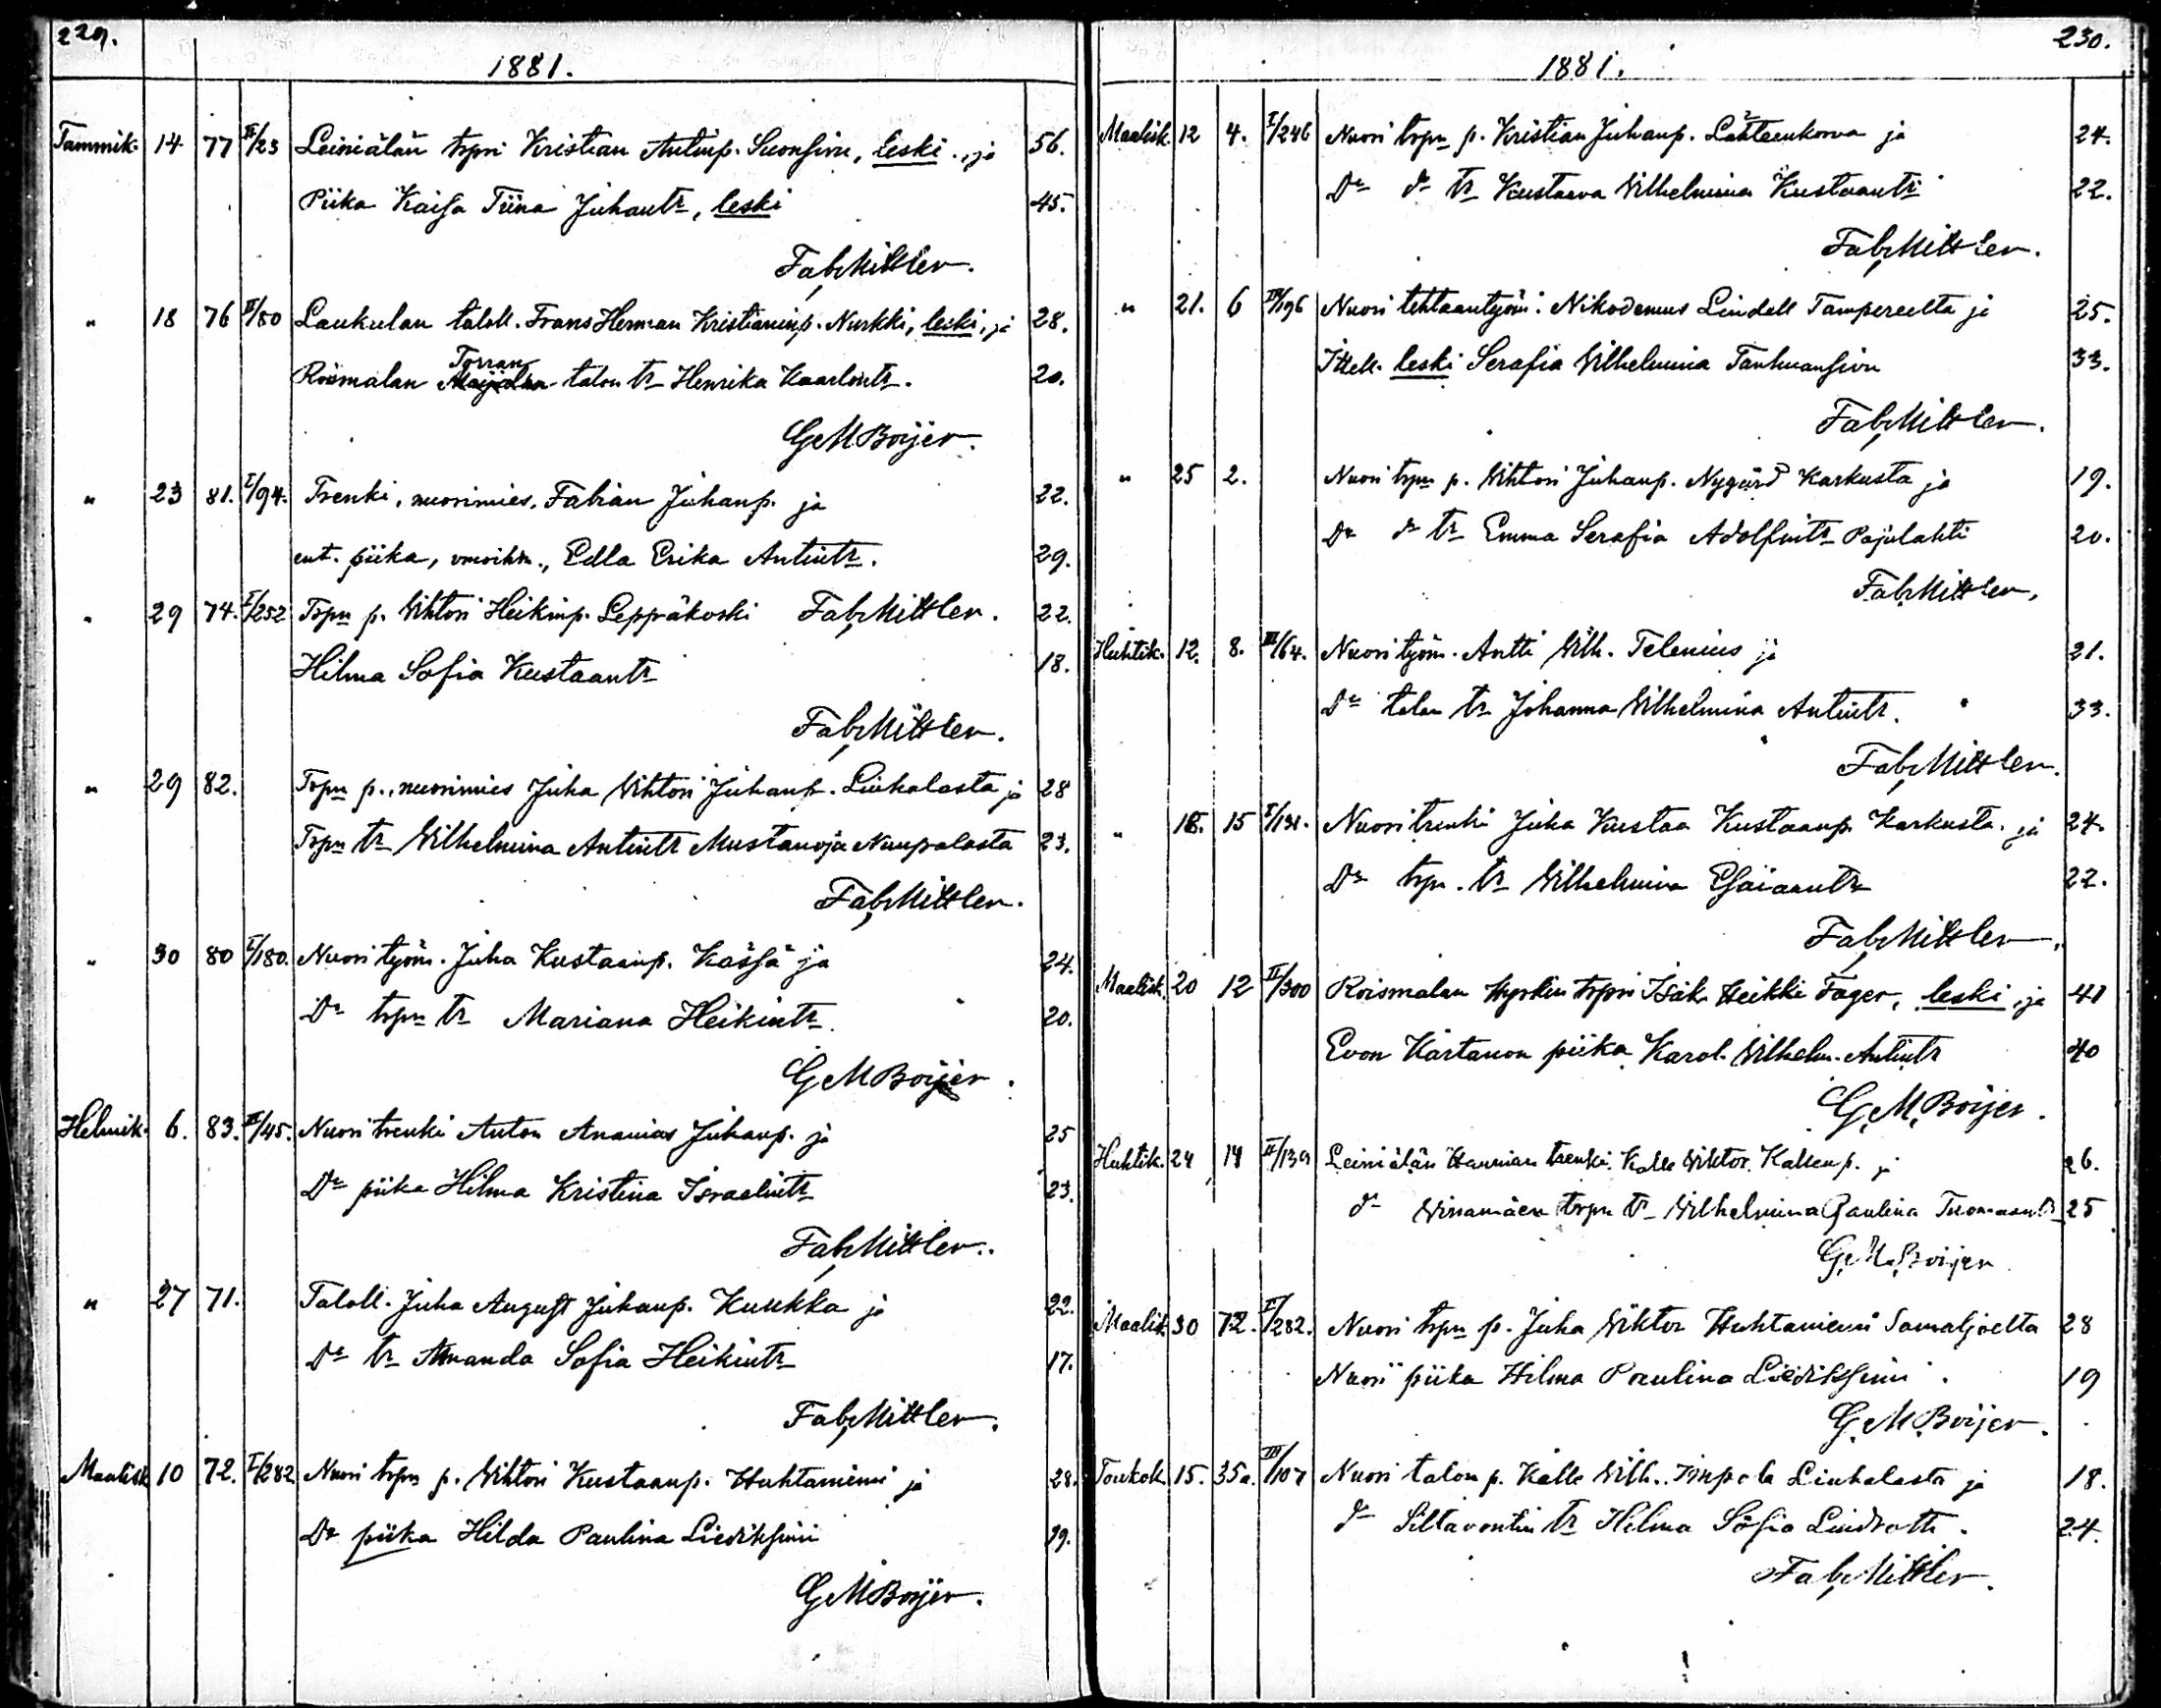 229.
1881.
Tammik. 14 77 II/23 Leiniälän trpri Kristian Antinp. Suonsivu, leski, ja 56.
Piika Kaisa Tiina Juhantr, leski 45.
Fab, Mittler.
" 18 76 II/80 Laukulan taloll. Frans Herman Kristianinp. Nurkki, leski, ja 28.
Roismalan Torran talon tr Henrika Kaarlontr. 20.
G M Boijer.
" 23 81. I/94. Trenki, nuorimies, Fabian Juhanp. ja 22.
ent. piika, Edla Erika Antintr. 29.
" 29 74. I/252 Trpn p. Wihtori Heikinp. Leppäkoski Fab, Mittler. 22.
Hilma Sofia Kustaantr 18.
Fab, Mittler.
" 29 82. Trpn p., nuorimies Juha Wihtori Juhanp. Liuhalasta ja 28
Trpn tr Wilhelmina Antintr Mustanoja Nuupalasta 23.
Fab, Mittler.
" 30 80 I/180. Nuori työm. Juha Kustaanp. Kässä ja 24.
Do trpn tr Mariana Heikintr. 20.
G M Boijer.
Helmik. 6. 83. II/45. Nuori trenki Anton Ananias Juhanp. ja 25
Do piika Hilma Kristina Israelintr 23.
Fab, Mittler.
" 27 71. Taloll. Juha August Juhanp. Kuukka ja 22.
Do tr Amanda Sofia Heikintr 17.
Fab, Mittler.
Maalisk 10 72. I/282 Nuori trpn p. Wihtori Kustaanp. Huhtaniemi ja 28.
Do piika Hilda Paulina Liedikssini 19.
G M Boijer.
230.
1881.
Maalisk. 12 4. I/246 Nuori trpn p. Kristian Juhanp. Lähteenkorva ja 24.
Do do tr Kustaava Wilhelmina Kustaantr 22.
Fab, Mittler.
" 21. 6 II/196 Nuori tehtaantyöm. Nikodemus Lindell Tampereelta ja 25.
Ittell. leski Serafia Wilhelmina Tanhuansivu 33.
Fab, Mittler.
" 25 2. Nuori trpn p. Wihtori Juhanp. Nygård Karkusta ja 19.
Do do tr Emma Serafia Adolfintr Pajulahti 20.
Fab, Mittler.
Huhtik. 12. 8. III/64. Nuori työm. Antti Wilh. Telenius ja 21.
Do talon tr Johanna Wilhelmina Antintr. 33.
Fab, Mittler.
" 18. 15 I/131. Nuori trenki Juha Kustaa Kustaanp. Karkusta ja 24.
Do trpn. tr Wilhelmina Esaiaantr 22.
Fab, Mittler.
Maalisk. 20 12 II/300 Roismalan Hyrkin trpri Isak Heikki Fager, leski, ja 41
Evon Kartanon piika Karol. Wilhelm. Antintr 40
G. M. Boijer.
Huhtik. 24 14 II/139 Leiniälän Hannian trenki Kalle Wiktor Kallenp. ja 26.
do Winamäen trpn tr Wilhelmina Paulina Tuomaantr 25
G. M. Boijer
Maalisk. 30 72. I/282. Nuori trpn p. Juha Wiktor Huhtaniemi Jamaljoelta 28
Nuori piika Hilma Paulina Liedikssini. 19
G. M. Boijer.
Toukok. 15. 35a. III/107 Nuori talon p. Kalle Wilh. Impola Liuhalasta ja 18.
do Siltavoutin tr Hilma Sofia Lindroth. 24.
Fab, Mittler.